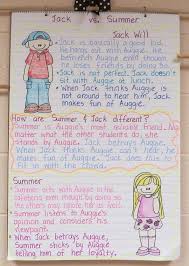 Jack vs. Summer
Jack Will
• Jack is basically a good kid.
He hangs out with Auggie. He
befriends Auggie even though
he loses friends by doing so.
• Jack is not perfect. Jack doesn't
sit with Auggie at lunch.
• When Jack thinks Auggie is
not around to hear him, Jack
makes fun of Auggie.
How are Summer & Jack different?
Summer is Auggie's most valuable friend. No
matter what the other students do, she
stands by Auggie. Jack betrays Auggie.
When Jack thinks Auggie can't hear, he
makes fun of Auggie. Jack does this to
fit in with the class.
Summer
Summer sits with Auggie in the
cafeteria even though by doing so
the others may ignore her as well.
Summer listens to Auggie's
opinion and considers his
viewpoint.
When Jack betrays Auggie,
Summer sticks by Auggie
telling him of her loyalty.